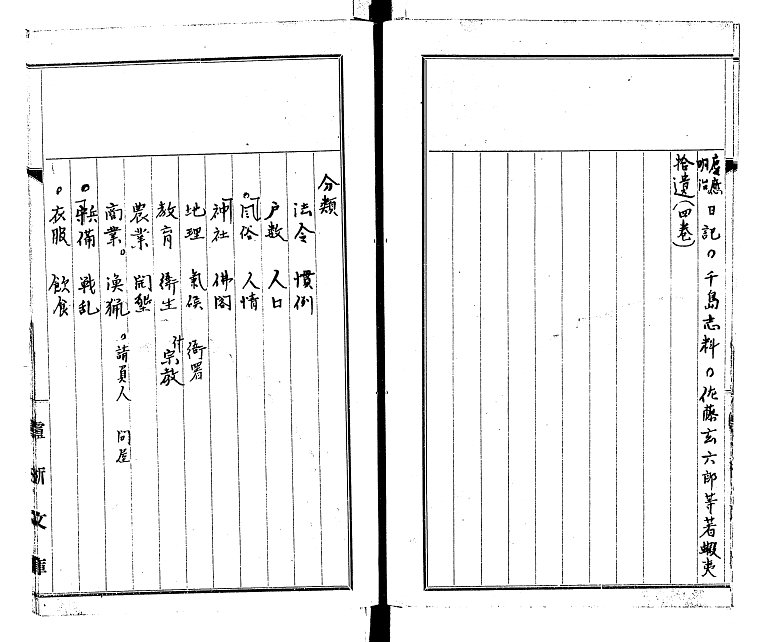 慶應明治日記〃千島志料〃佐藤玄六郎等著蝦夷
拾遺（四巻）
分類
法令 慣例
戸数 人口
。風俗 人情
神社 佛閣
地理 氣候 衙署
教育 衛生 付宗教
農業 開墾
商業。漁猟。請負人 問屋
。兵備 戦乱
。衣服 飲食
文庫